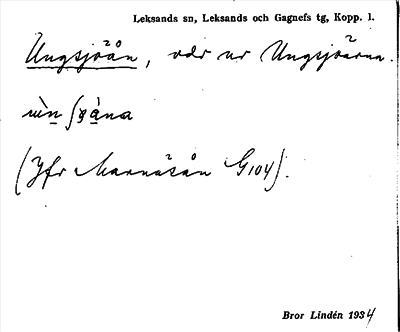 Leksands sn, Leksands och Gagnefs tg, Kopp. l.
Ungsjöån, vdr ur Ungsjöarna.
(Jfr Marnäsån G104).
Bror Lindén 1934